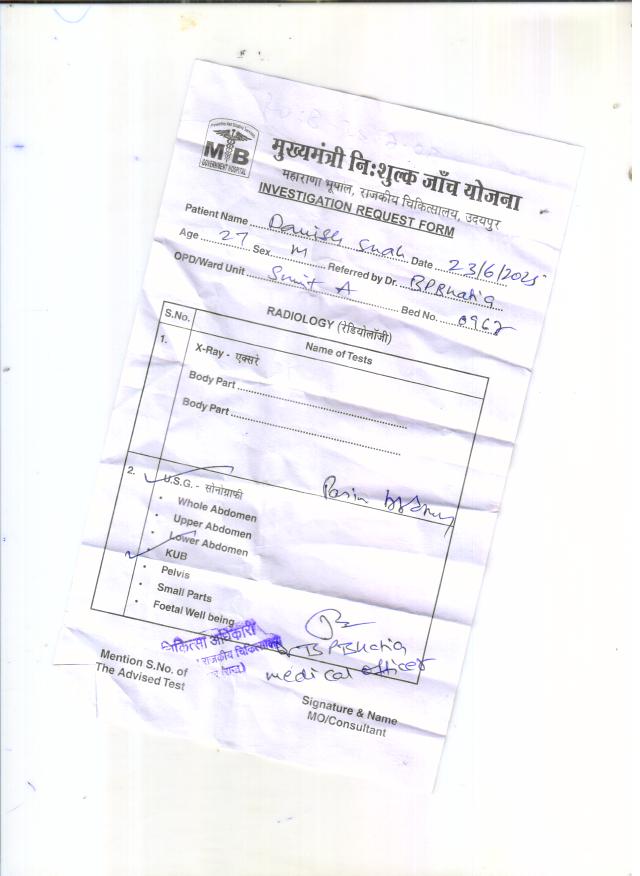 Preventive And Curative Services
MB
GOVERNMENT HOSPITAL
मुख्यमंत्री नि:शुल्क जाँच योजना
महाराणा भूपाल, राजकीय चिकित्सालय, उदयपुर
INVESTIGATION REQUEST FORM
Patient Name Danish Shah Date 23/6/2025
Age 27 Sex M Referred by Dr. BPBhatia
OPD/Ward Unit A Bed No.
RADIOLOGY (रेडियोलॉजी)
S.No. Name of Tests
1. X-Ray - एक्सरे
Body Part
Body Part
2. U.S.G. - सोनोग्राफी
• Whole Abdomen
• Upper Abdomen
• Lower Abdomen
KUB
• Pelvis
• Small Parts
• Foetal Well being
चिकित्सा अधिकारी
राजकीय चिकित्सालय
BPBhatia
medical officer
Mention S.No. of
The Advised Test
Signature & Name
MO/Consultant